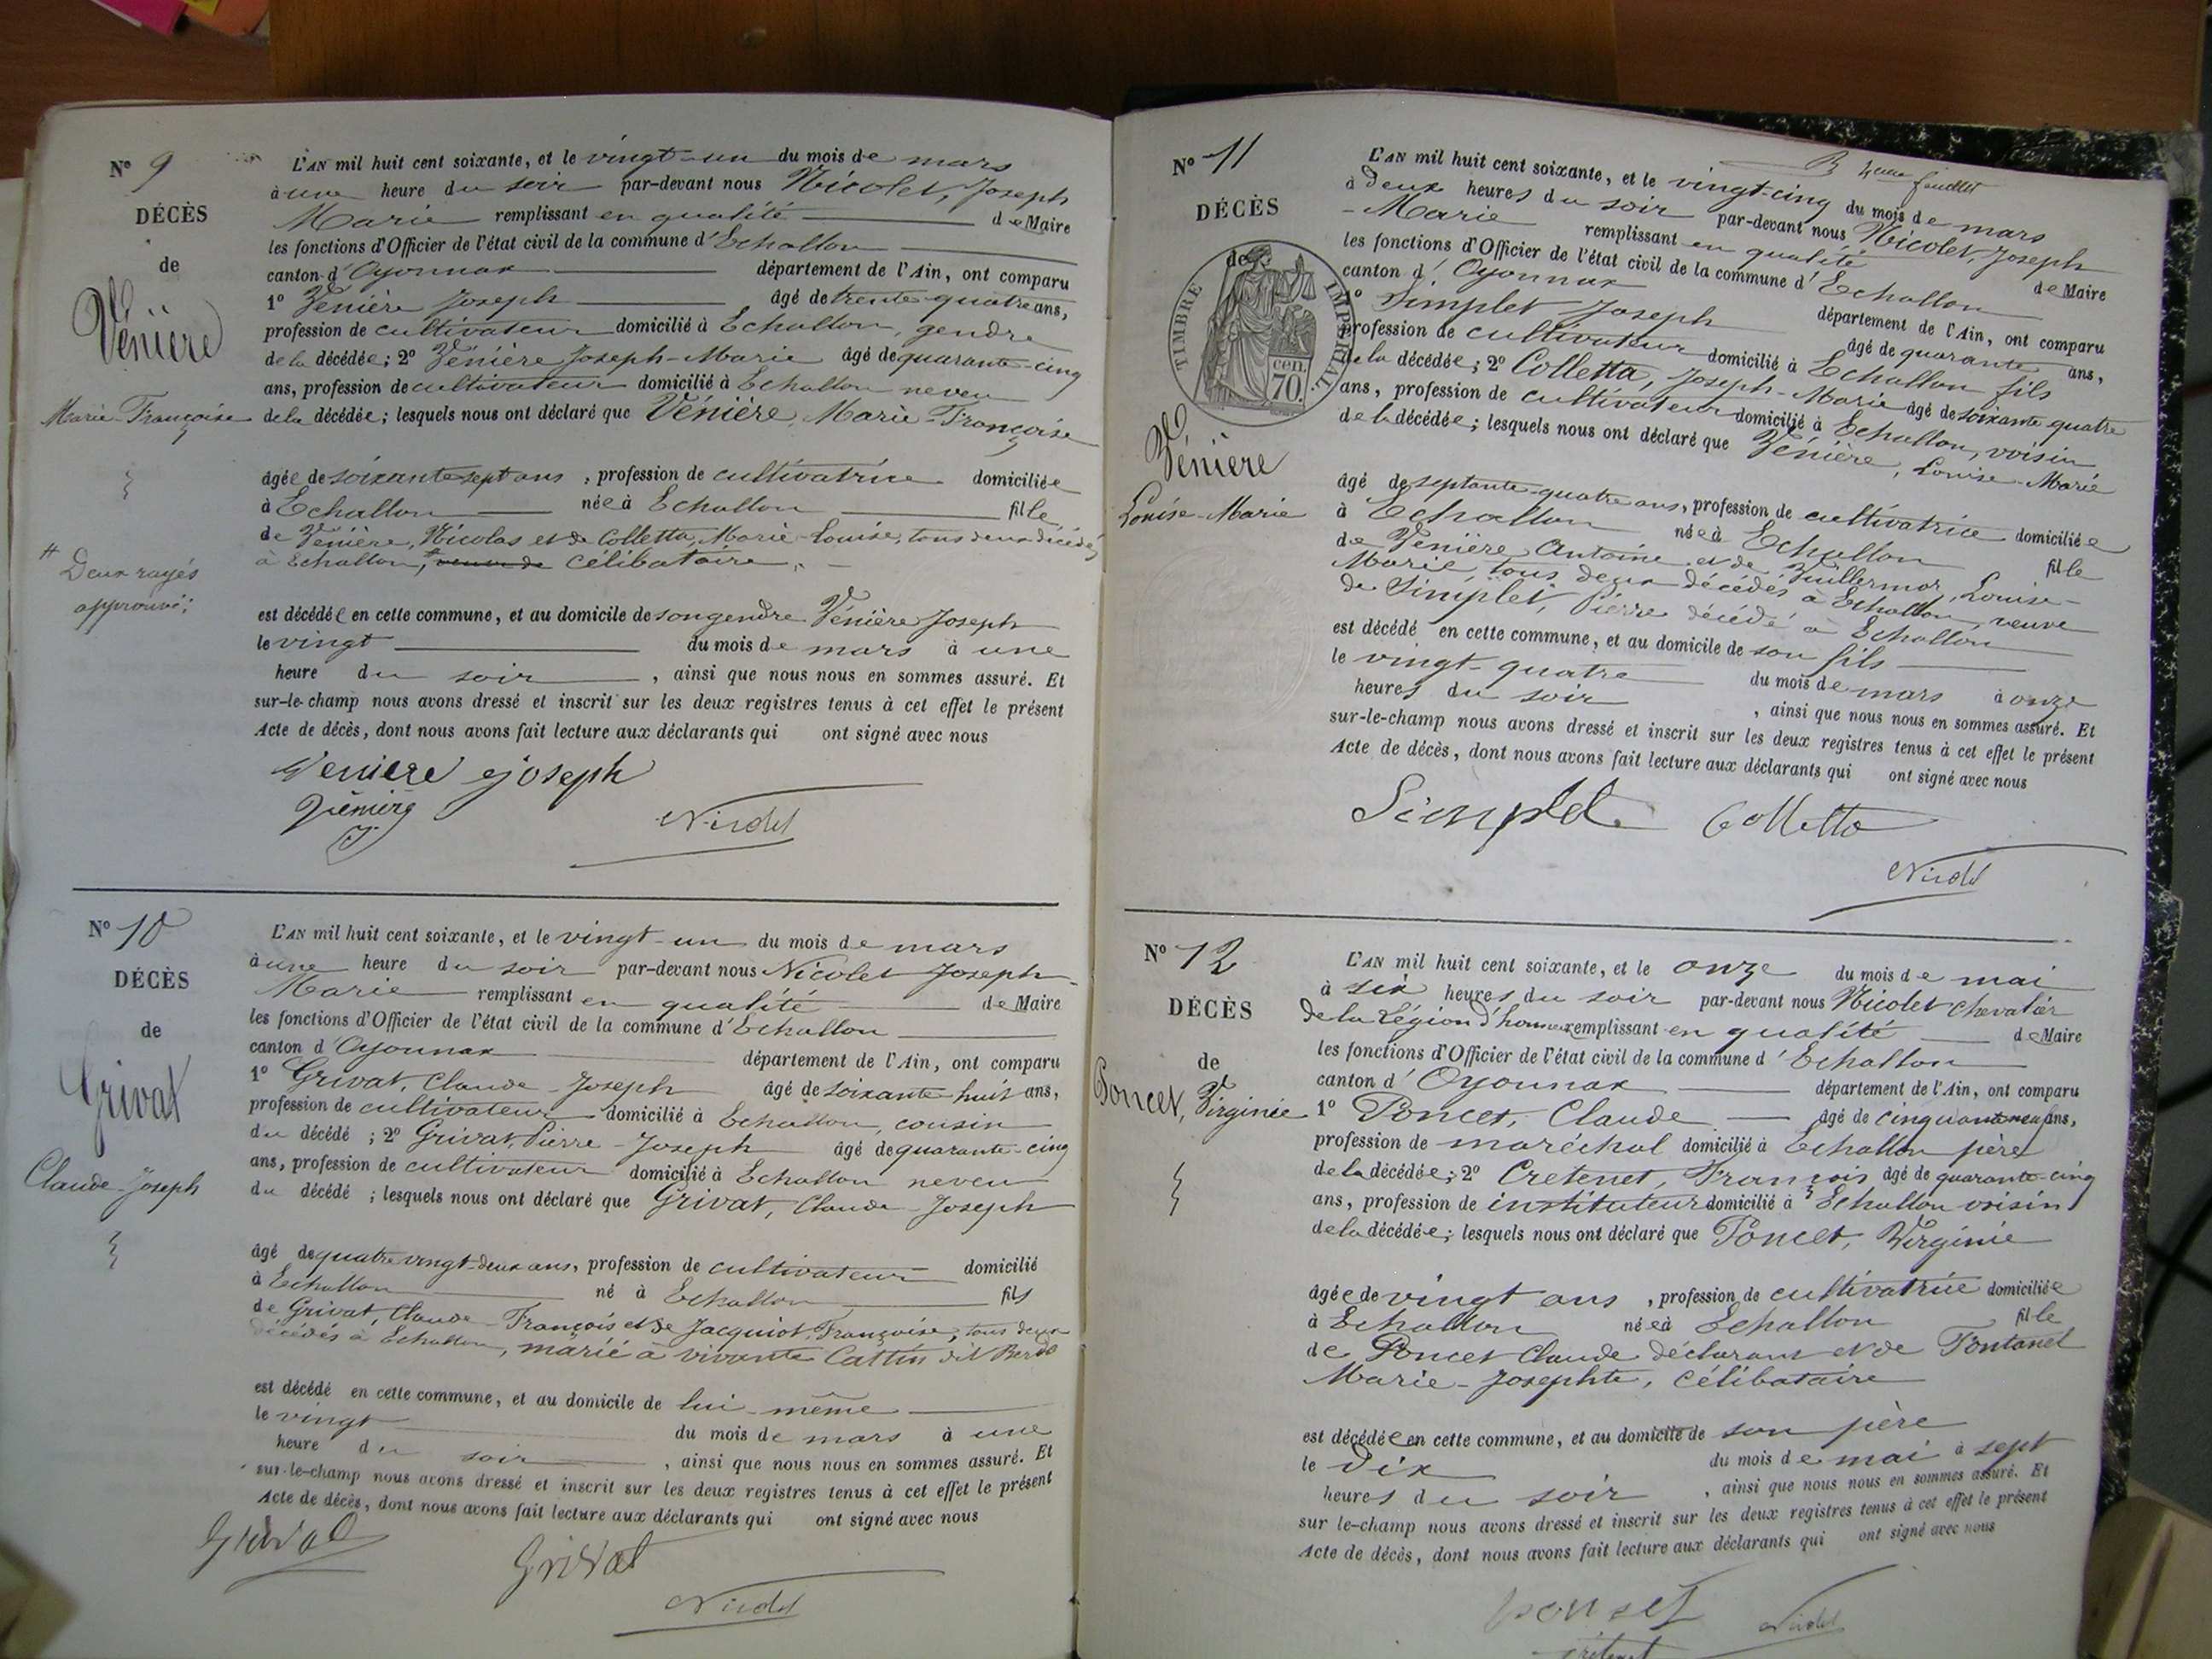 Nº 9
DÉCÈS
de
Vénière
Marie-Françoise
# Deux rayés
approuvé;
L'AN mil huit cent soixante, et le vingt-un du mois de mars
à une heure du soir par-devant nous Nicolet, Joseph
Marie remplissant en qualité de Maire
les fonctions d'Officier de l'état civil de la commune d'Echallon
canton d'Oyonnax département de l'Ain, ont comparu
1º Vénière Joseph âgé de trente-quatre ans,
profession de cultivateur domicilié à Echallon, gendre
de la décédée; 2º Vénière Joseph-Marie âgé de quarante-cinq
ans, profession de cultivateur domicilié à Echallon neveu
de la décédée; lesquels nous ont déclaré que Vénière, Marie-Françoise
âgée de soixante sept ans, profession de cultivatrice domiciliée
à Echallon née à Echallon fille
de Vénière, Nicolas et de Colletta, Marie-Louise, tous deux décédés
à Echallon, # veuve de célibataire,
est décédée en cette commune, et au domicile de son gendre Vénière Joseph
le vingt du mois de mars à une
heure du soir, ainsi que nous nous en sommes assuré. Et
sur-le-champ nous avons dressé et inscrit sur les deux registres tenus à cet effet le présent
Acte de décès, dont nous avons fait lecture aux déclarants qui ont signé avec nous
Veniere joseph
Vénière
J
Nicolet
Nº 10
DÉCÈS
de
Grivat
Claude-Joseph
L'AN mil huit cent soixante, et le vingt-un du mois de mars
à une heure du soir par-devant nous Nicolet Joseph-
Marie remplissant en qualité de Maire
les fonctions d'Officier de l'état civil de la commune d'Echallon
canton d'Oyonnax département de l'Ain, ont comparu
1º Grivat, Claude-Joseph âgé de soixante huit ans,
profession de cultivateur domicilié à Echallon, cousin
du décédé; 2º Grivat, Pierre-Joseph âgé de quarante-cinq
ans, profession de cultivateur domicilié à Echallon neveu
du décédé; lesquels nous ont déclaré que Grivat, Claude-Joseph
âgé de quatre vingt-deux ans, profession de cultivateur domicilié
à Echallon né à Echallon fils
de Grivat, Claude-François et de Jacquiot, Françoise, tous deux
décédés à Echallon, marié à vivante Cattin dit
est décédé en cette commune, et au domicile de lui-même
le vingt du mois de mars à une
heure du soir, ainsi que nous nous en sommes assuré. Et
sur-le-champ nous avons dressé et inscrit sur les deux registres tenus à cet effet le présent
Acte de décès, dont nous avons fait lecture aux déclarants qui ont signé avec nous
Grivat
Grivat
Nicolet
4eme feuillet
Nº 11
DÉCÈS
de
TIMBRE IMPÉRIAL
70 cen.
Vénière
Louise-Marie
L'AN mil huit cent soixante, et le vingt-cinq du mois de mars
à deux heures du soir par-devant nous Nicolet, Joseph
-Marie remplissant en qualité de Maire
les fonctions d'Officier de l'état civil de la commune d'Echallon
canton d'Oyonnax département de l'Ain, ont comparu
1º Simplet Joseph âgé de quarante ans,
profession de cultivateur domicilié à Echallon fils
de la décédée; 2º Colletta, Joseph-Marie âgé de soixante quatre
ans, profession de cultivateur domicilié à Echallon, voisin
de la décédée; lesquels nous ont déclaré que Vénière, Louise-Marie
âgé de septante-quatre ans, profession de cultivatrice domiciliée
à Echallon née à Echallon fille
de Vénière, Antoine et de Vuillermoz, Louise-
Marie, tous deux décédés à Echallon, veuve
de Simplet, Pierre décédé à Echallon
est décédé en cette commune, et au domicile de son fils
le vingt-quatre du mois de mars à onze
heures du soir, ainsi que nous nous en sommes assuré. Et
sur-le-champ nous avons dressé et inscrit sur les deux registres tenus à cet effet le présent
Acte de décès, dont nous avons fait lecture aux déclarants qui ont signé avec nous
Simplet Colletta
Nicolet
Nº 12
DÉCÈS
de
Poncet, Virginie
L'AN mil huit cent soixante, et le onze du mois de mai
à six heures du soir par-devant nous Nicolet chevalier
de la Légion d'honneur remplissant en qualité de Maire
les fonctions d'Officier de l'état civil de la commune d'Echallon
canton d'Oyonnax département de l'Ain, ont comparu
1º Poncet, Claude âgé de cinquante neuf ans,
profession de maréchal domicilié à Echallon père
de la décédée; 2º Cretenet, François âgé de quarante-cinq
ans, profession de instituteur domicilié à Echallon voisin
de la décédée; lesquels nous ont déclaré que Poncet, Virginie
âgée de vingt ans, profession de cultivatrice domiciliée
à Echallon née à Echallon fille
de Poncet Claude déclarant et de Fontanel
Marie-Josephte, célibataire
est décédée en cette commune, et au domicile de son père
le dix du mois de mai à sept
heures du soir, ainsi que nous nous en sommes assuré. Et
sur le-champ nous avons dressé et inscrit sur les deux registres tenus à cet effet le présent
Acte de décès, dont nous avons fait lecture aux déclarants qui ont signé avec nous
ponset Nicolet
crétenet